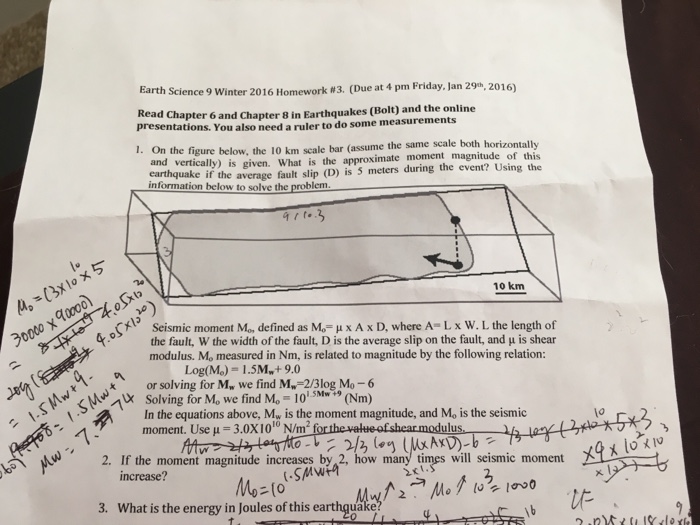 Earth Science 9 Winter 2016 Homework #3. (Due at 4 pm Friday, Jan 29th, 2016)
Read Chapter 6 and Chapter 8 in Earthquakes (Bolt) and the online
presentations. You also need a ruler to do some measurements
1. On the figure below, the 10 km scale bar (assume the same scale both horizontally
and vertically) is given. What is the approximate moment magnitude of this
earthquake if the average fault slip (D) is 5 meters during the event? Using the
information below to solve the problem.
3
10 km
M₀ = (3×10¹⁰ × 5
30000 × 90000)
= 4.05×10²⁰
4.05×10²⁰)
= 1.5Mw+9.
= 1.5Mw+9
Mw = 7.74
Seismic moment Mo, defined as Mo= μ x A x D, where A= L x W. L the length of
the fault, W the width of the fault, D is the average slip on the fault, and μ is shear
modulus. Mo measured in Nm, is related to magnitude by the following relation:
Log(Mo) = 1.5Mw+ 9.0
or solving for Mw we find Mw=2/3log Mo – 6
Solving for Mo we find Mo = 10^1.5Mw+9 (Nm)
In the equations above, Mw is the moment magnitude, and Mo is the seismic
moment. Use μ = 3.0X10¹⁰ N/m² for the value of shear modulus.
Mw = 2/3 log Mo - 6 = 2/3 log (MxAxD) - 6 = 2/3 log (3×10¹⁰×5×3
×9×10³×10³
2. If the moment magnitude increases by 2, how many times will seismic moment
increase?
M₀=10^1.5Mw+9
2×1.5
Mw↑2 → M₀↑10³=1000
3. What is the energy in Joules of this earthquake?